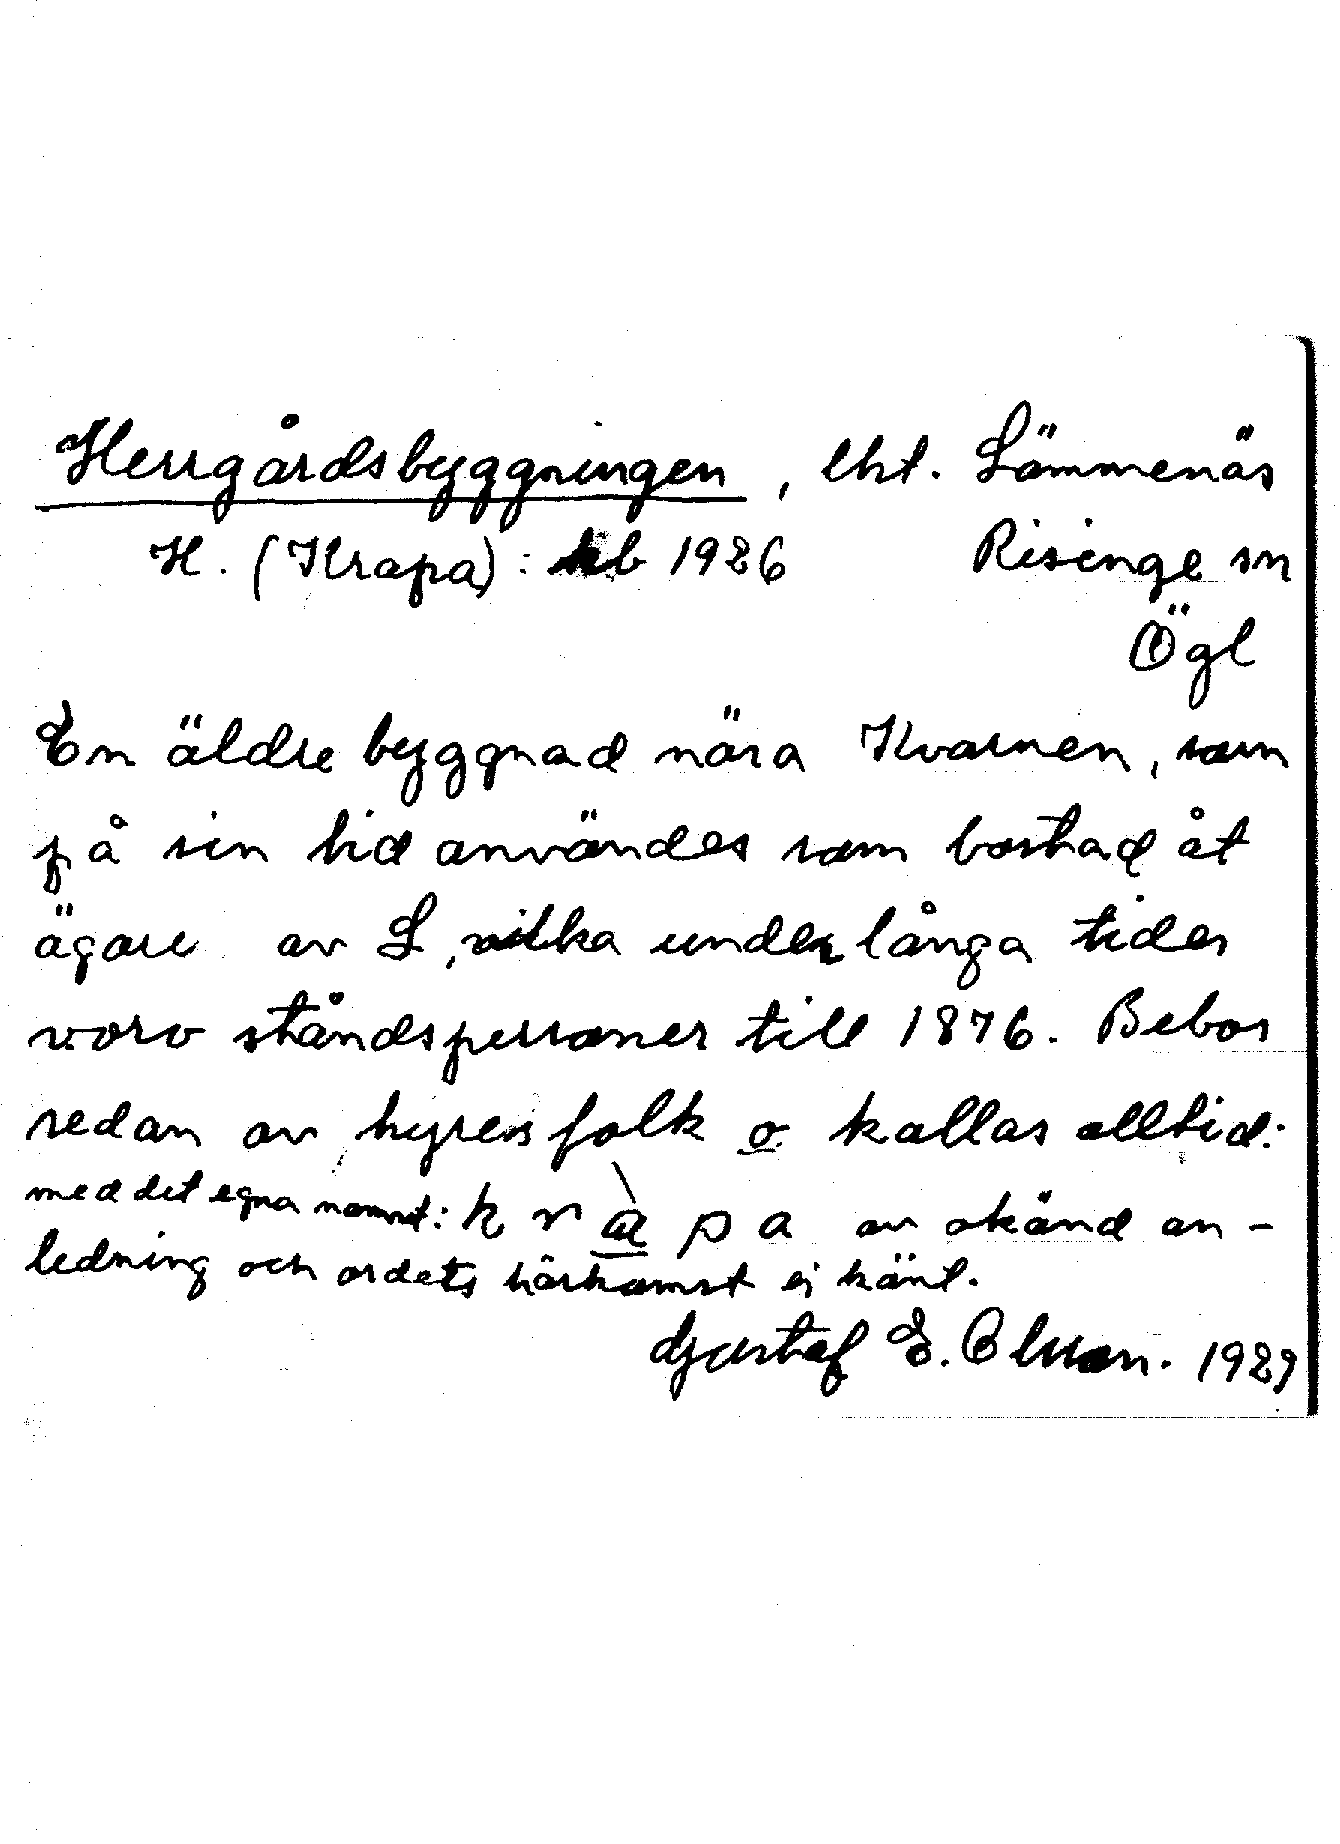 Herrgårdsbyggningen, lht. Lämmenäs
H. (Krapa): kb 1926 Risinge sn
Ögl
En äldre byggnad nära Kvarnen, som
på sin tid användes som bostad åt
ägare av L, vilka under långa tider
voro ståndspersoner till 1876. Bebos
sedan av hyresfolk o kallas alltid:
med det egna namnet: kràpa av okänd an-
ledning och ordets härkomst ej känt.
Gustaf E. Olsson. 1929